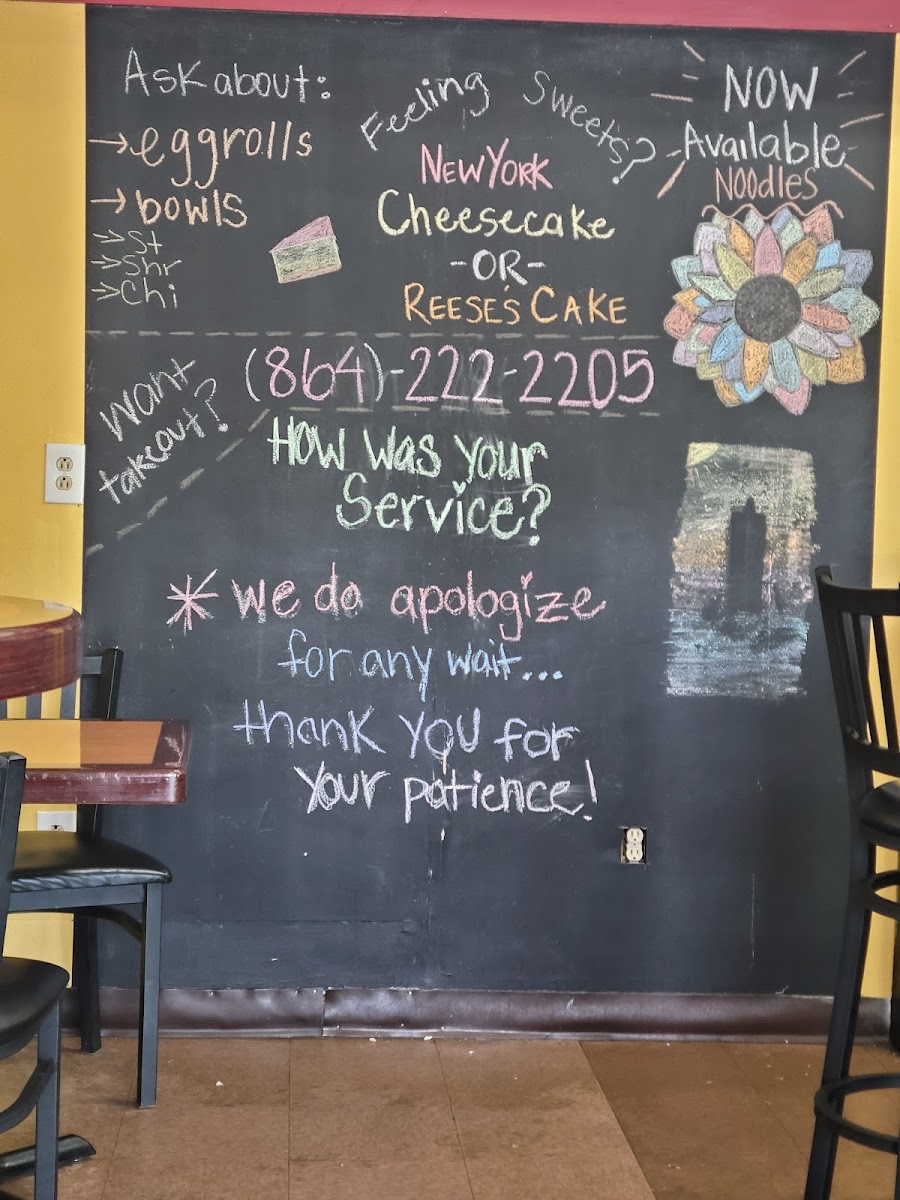 Ask about:
→ eggrolls
→ bowls
>> St
>> Shr
>> Chi
Feeling Sweets?
NEW YORK
Cheesecake
-OR-
REESE'S CAKE
NOW
Available
NOODLES
Want
takeout?
(864)-222-2205
How Was Your
Service?
* we do apologize
for any wait...
thank you for
your patience!